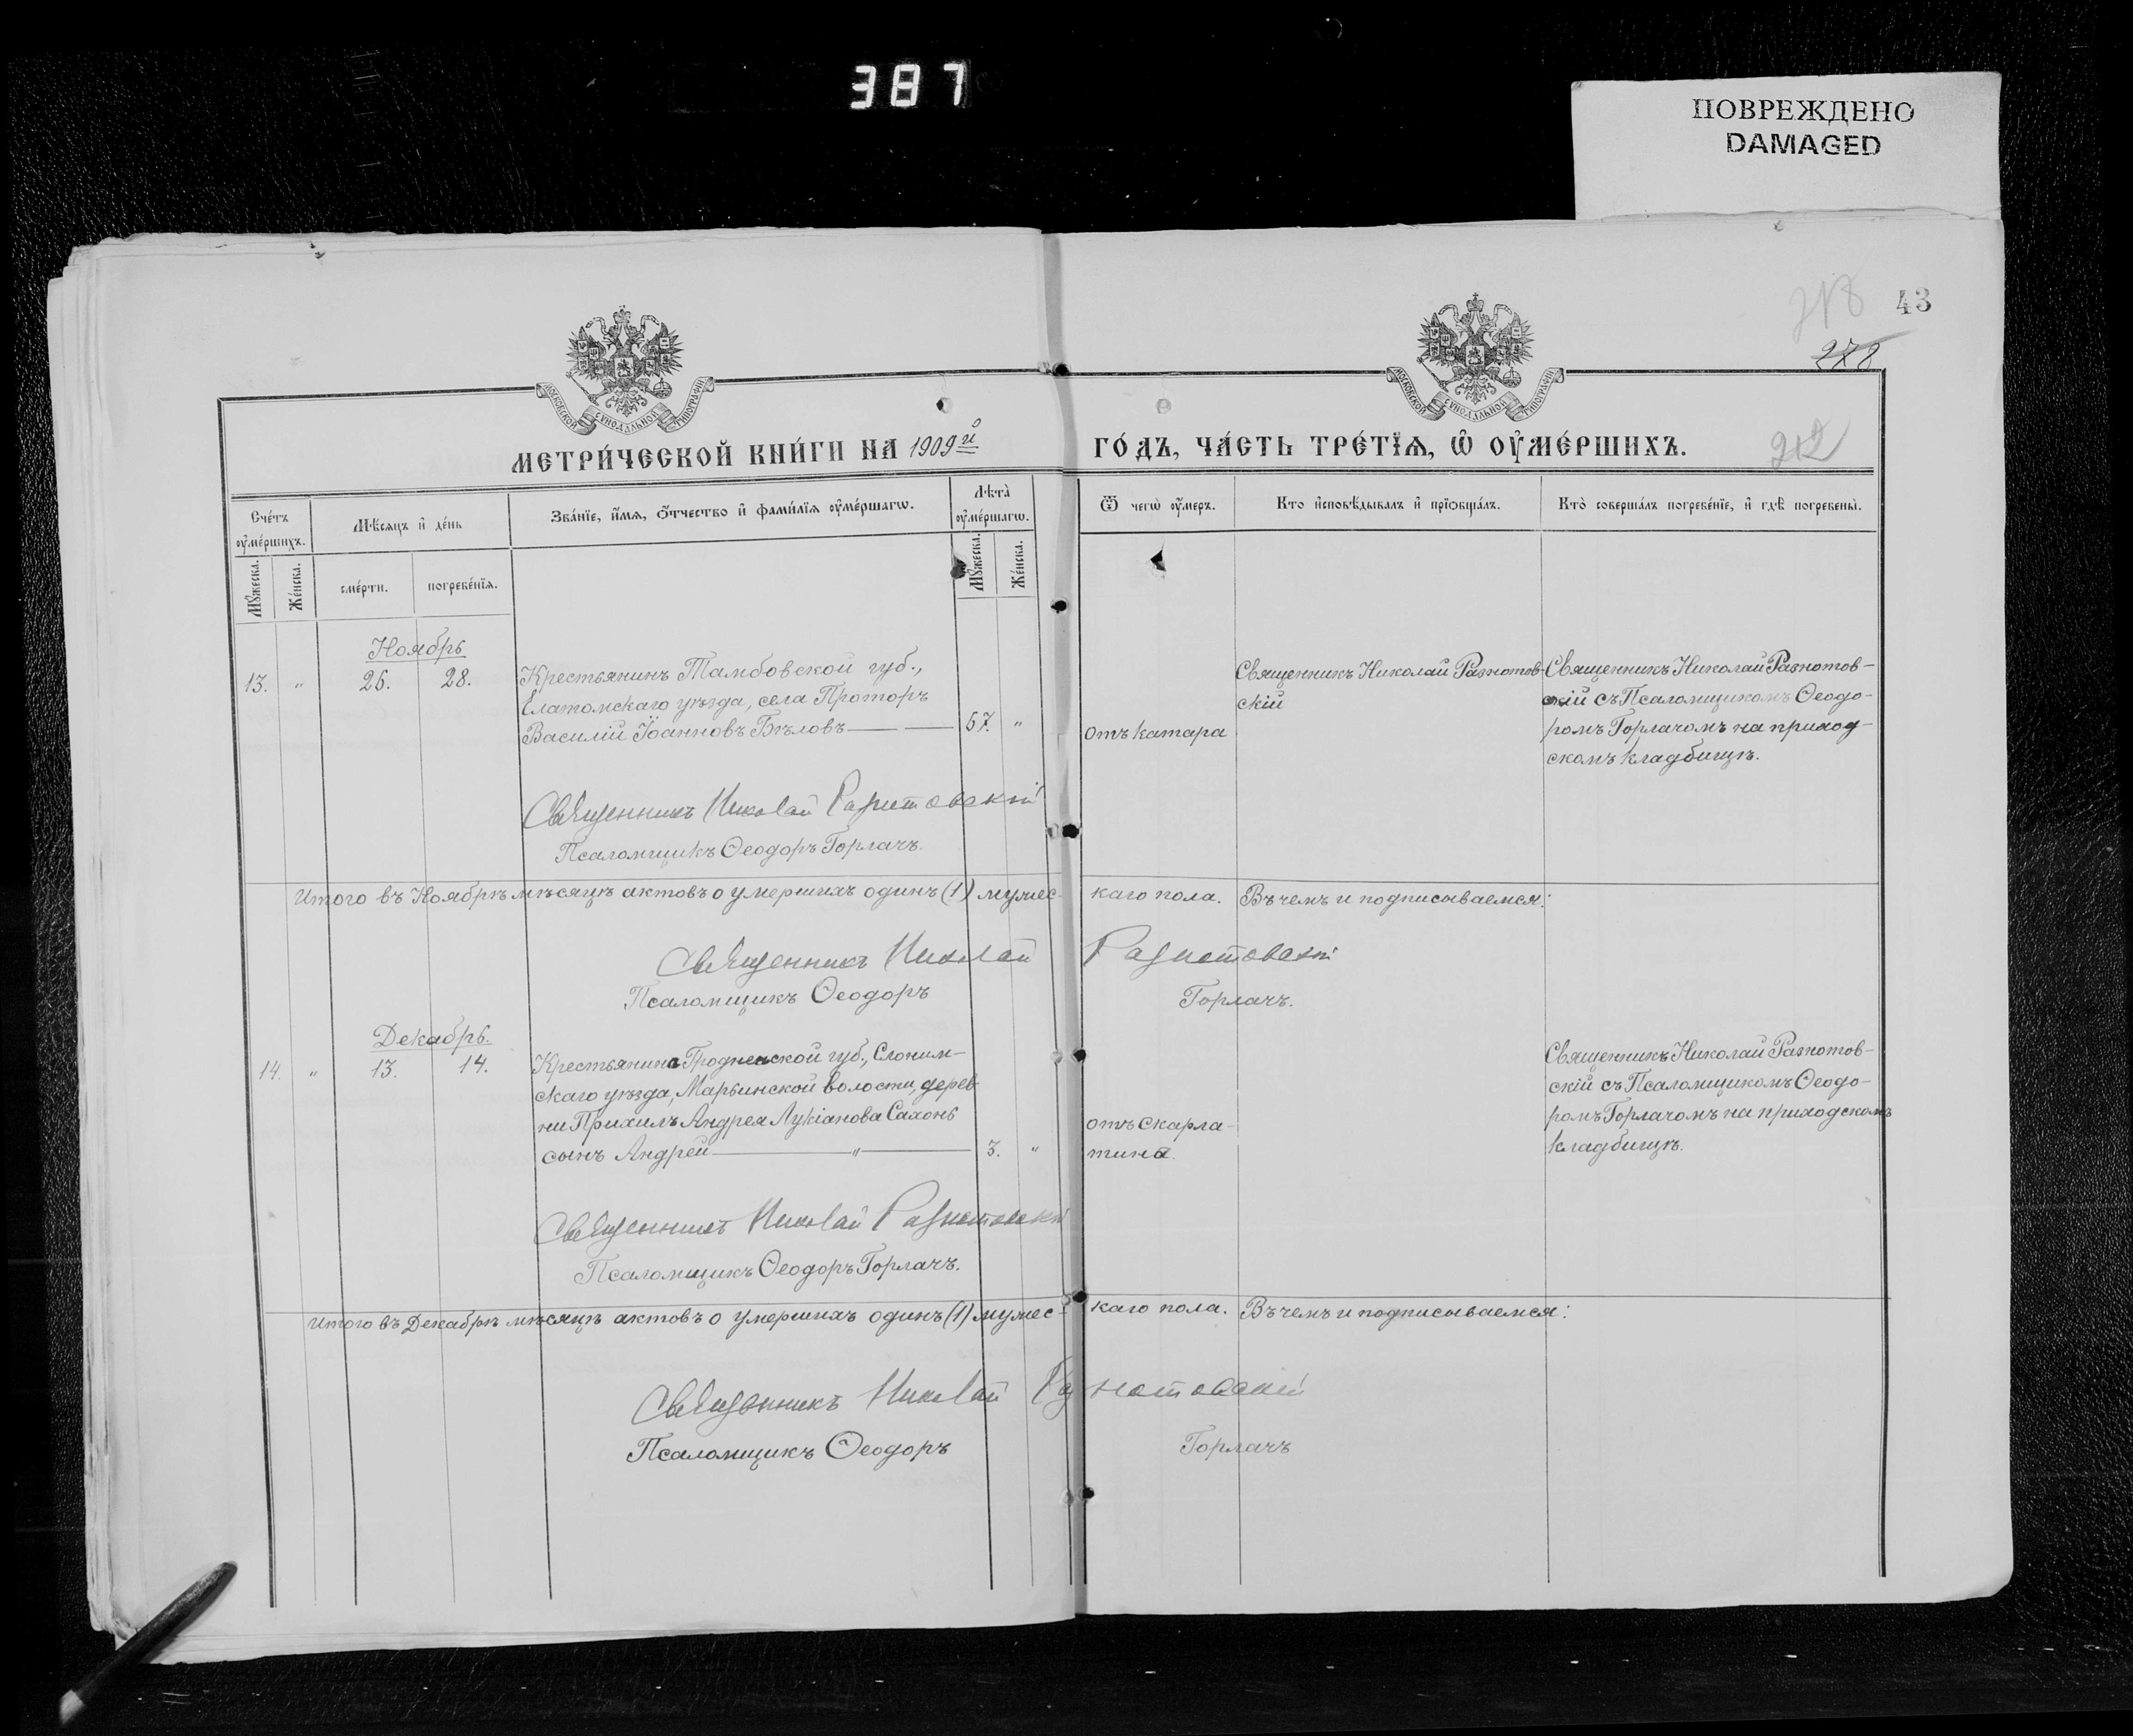 387
ПОВРЕЖДЕНО
DAMAGED
43
318
278
212
МОСКОВСКОЙ СѴНОДАЛЬНОЙ ТИПОГРАФІИ
МОСКОВСКОЙ СѴНОДАЛЬНОЙ ТИПОГРАФІИ
МЕТРИ́ЧЕСКОЙ КНИ́ГИ НА 1909й
ГО́ДЪ, ЧА́СТЬ ТРЕ́ТЇѦ, Ѡ҆ ОУ҆МЕ́РШИХЪ.
Сче́тъ оу҆ме́ршихъ.
Мѣ́сѧцъ и҆ де́нь
Зва́нїе, и҆́мѧ, ѻ҆́тчество и҆ фами́лїѧ оу҆ме́ршагѡ.
Лѣта̀ оу҆ме́ршагѡ.
Ѿ чегѡ̀ оу҆́меръ.
Кто̀ и҆сповѣ́дывалъ и҆ прїѡбща́лъ.
Кто̀ соверша́лъ погребе́нїе, и҆ гдѣ̀ погребены̀.
Мꙋ́жеска.
Же́нска.
сме́рти.
погребе́нїѧ.
Мꙋ́жеска.
Же́нска.
Ноябрь
13. " 26. 28.
Крестьянинъ Тамбовской губ.,
Елатомскаго уѣзда, села Проторъ
Василій Іоанновъ Бѣловъ 57. "
отъ катара
Священникъ Николай Разнотов-
скій
Священникъ Николай Разнотов-
скій съ Псаломщикомъ Ѳеодо-
ромъ Горлачомъ на приход-
скомъ кладбищѣ.
Священникъ Николай Разнотовскій
Псаломщикъ Ѳеодоръ Горлачъ.
Итого въ Ноябрѣ мѣсяцѣ актовъ о умершихъ одинъ (1) мужес-
каго пола. Въ чемъ и подписываемся:
Священникъ Николай Разнотовскій
Псаломщикъ Ѳеодоръ Горлачъ.
Декабрь.
14. " 13. 14.
Крестьянина Гродненской губ., Слоним-
скаго уѣзда, Марьинской волости, дерев-
ни Прихилъ Андрея Лукіанова Сахонь
сынъ Андрей " 3. "
отъ скарла-
тина.
Священникъ Николай Разнотов-
скій съ Псаломщикомъ Ѳеодо-
ромъ Горлачомъ на приходскомъ
кладбищѣ.
Священникъ Николай Разнотовскій
Псаломщикъ Ѳеодоръ Горлачъ.
Итого въ Декабрѣ мѣсяцѣ актовъ о умершихъ одинъ (1) мужес-
каго пола. Въ чемъ и подписываемся:
Священникъ Николай Разнотовскій
Псаломщикъ Ѳеодоръ Горлачъ